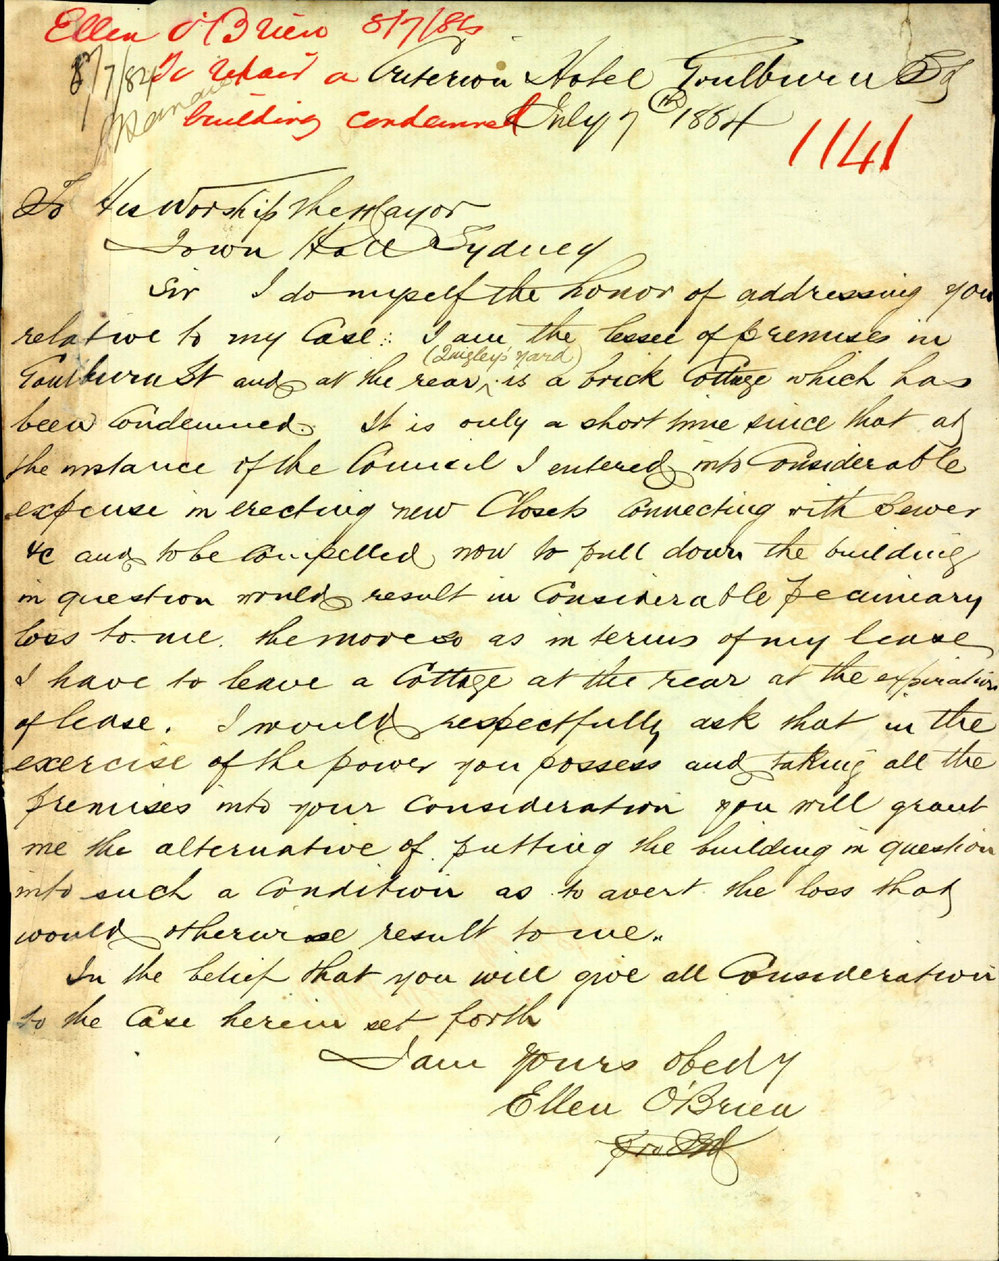 Ellen O'Brien 8/7/84
8/7/84 To repair a
building condemned
Criterion Hotel Goulburn St
July 7th 1884
1141
To His Worship the Mayor
Town Hall Sydney
Sir I do myself the honor of addressing you
relative to my Case: I am the lessee of premises in
(Quigley's yard)
Goulburn St and at the rear is a brick Cottage which has
been Condemned. It is only a short time since that at
the instance of the Council I entered into Considerable
expense in erecting new Closets Connecting with Sewer
&c and to be Compelled now to pull down the building
in question would result in Considerable Pecuniary
loss to me. the more so as in terms of my lease
I have to leave a Cottage at the rear at the expiration
of lease. I would respectfully ask that in the
exercise of the power you possess and taking all the
premises into your Consideration you will grant
me the alternative of putting the building in question
into such a Condition as to avert the loss that
would otherwise result to me.
In the belief that you will give all Consideration
to the Case herein set forth
I am Yours obedy
Ellen O'Brien